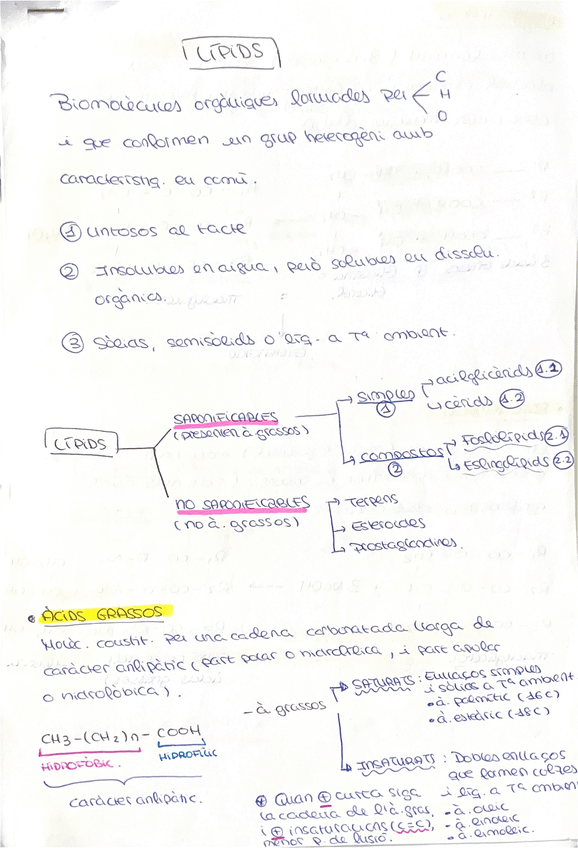 LÍPIDS
Biomolècules orgàniques formades per C H O
i que conformen un grup heterogèni amb
característiq. en comú.
① Untosos al tacte
② Insolubles en aigua, però solubles en dissolu.
orgànics.
③ Sòlids, semisòlids o líq. a Tª ambient.
LÍPIDS
SAPONIFICABLES
(presenten à grassos)
simples ①
acilglicèrids 1.1
cèrids 1.2
compostos ②
Fosfolípids 2.1
Esfingolípids 2.2
NO SAPONIFICABLES
(no à. grassos)
Terpens
Esteroides
Prostaglandines.
• ÀCIDS GRASSOS
Molèc. constit. per una cadena carbonatada llarga de
caràcter anfipàtic (part polar o hidrofílica, i part apolar
o hidrofòbica).
- à grassos
SATURATS: Enllaços simples
i sòlids a Tª ambient
• à. palmític (16C)
• à. esteàric (18C)
CH3-(CH2)n-COOH
HIDROFÒBIC.
HIDROFÍLIC
caràcter anfipàtic.
INSATURATS: Dobles enllaços
que formen colzes
i líq. a Tª ambient
- à. oleic
- à. linoleic
⊕ Quan ⊕ curta siga
la cadena de l'à. gras,
i ⊕ insaturacions (C=C),
menor p. de fusió.